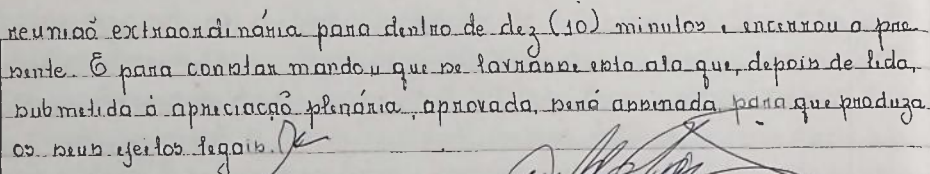 reunião extraordinária para dentro de dez (10) minutos e encerrou a pre
sente. E para constar mandou que se lavrasse esta ata que, depois de lida,
submetida á apreciação plenária, aprovada, será assinada para que produza
os seus efeitos legais.